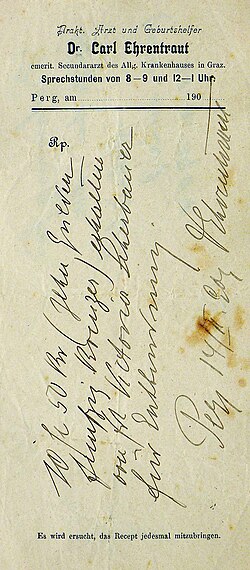 Prakt. Arzt und Geburtshelfer
Dr. Carl Ehrentraut
emerit. Secundararzt des Allg. Krankenhauses in Graz.
Sprechstunden von 8–9 und 12–1 Uhr.
Perg, am 190
Rp.
10 fl 50 Kr (Zehn Gulden
fünfzig Kreuzer) erhalten
von Victoria
für Entbindung
Perg 14/ Ehrentraut
Es wird ersucht, das Recept jedesmal mitzubringen.